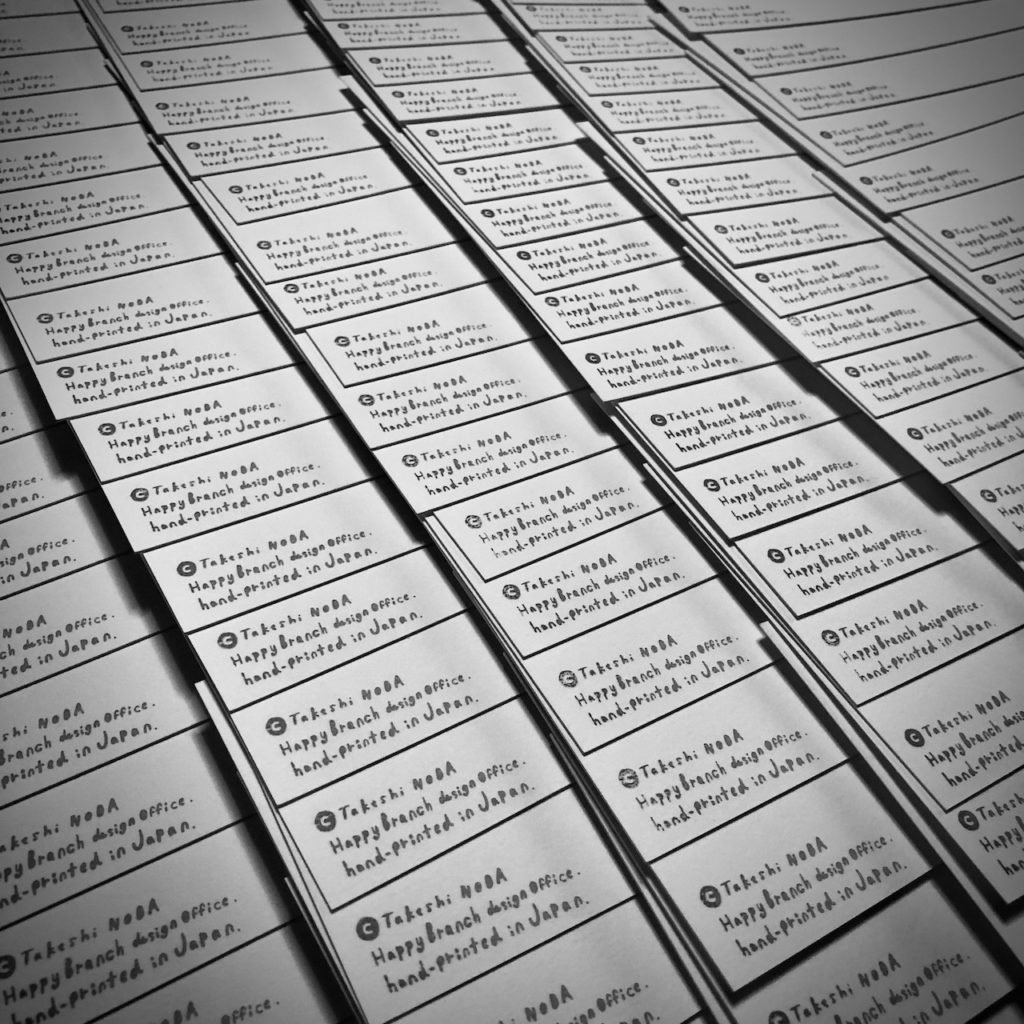 © Takeshi NODA
HappyBranch designOffice.
hand-printed in Japan.